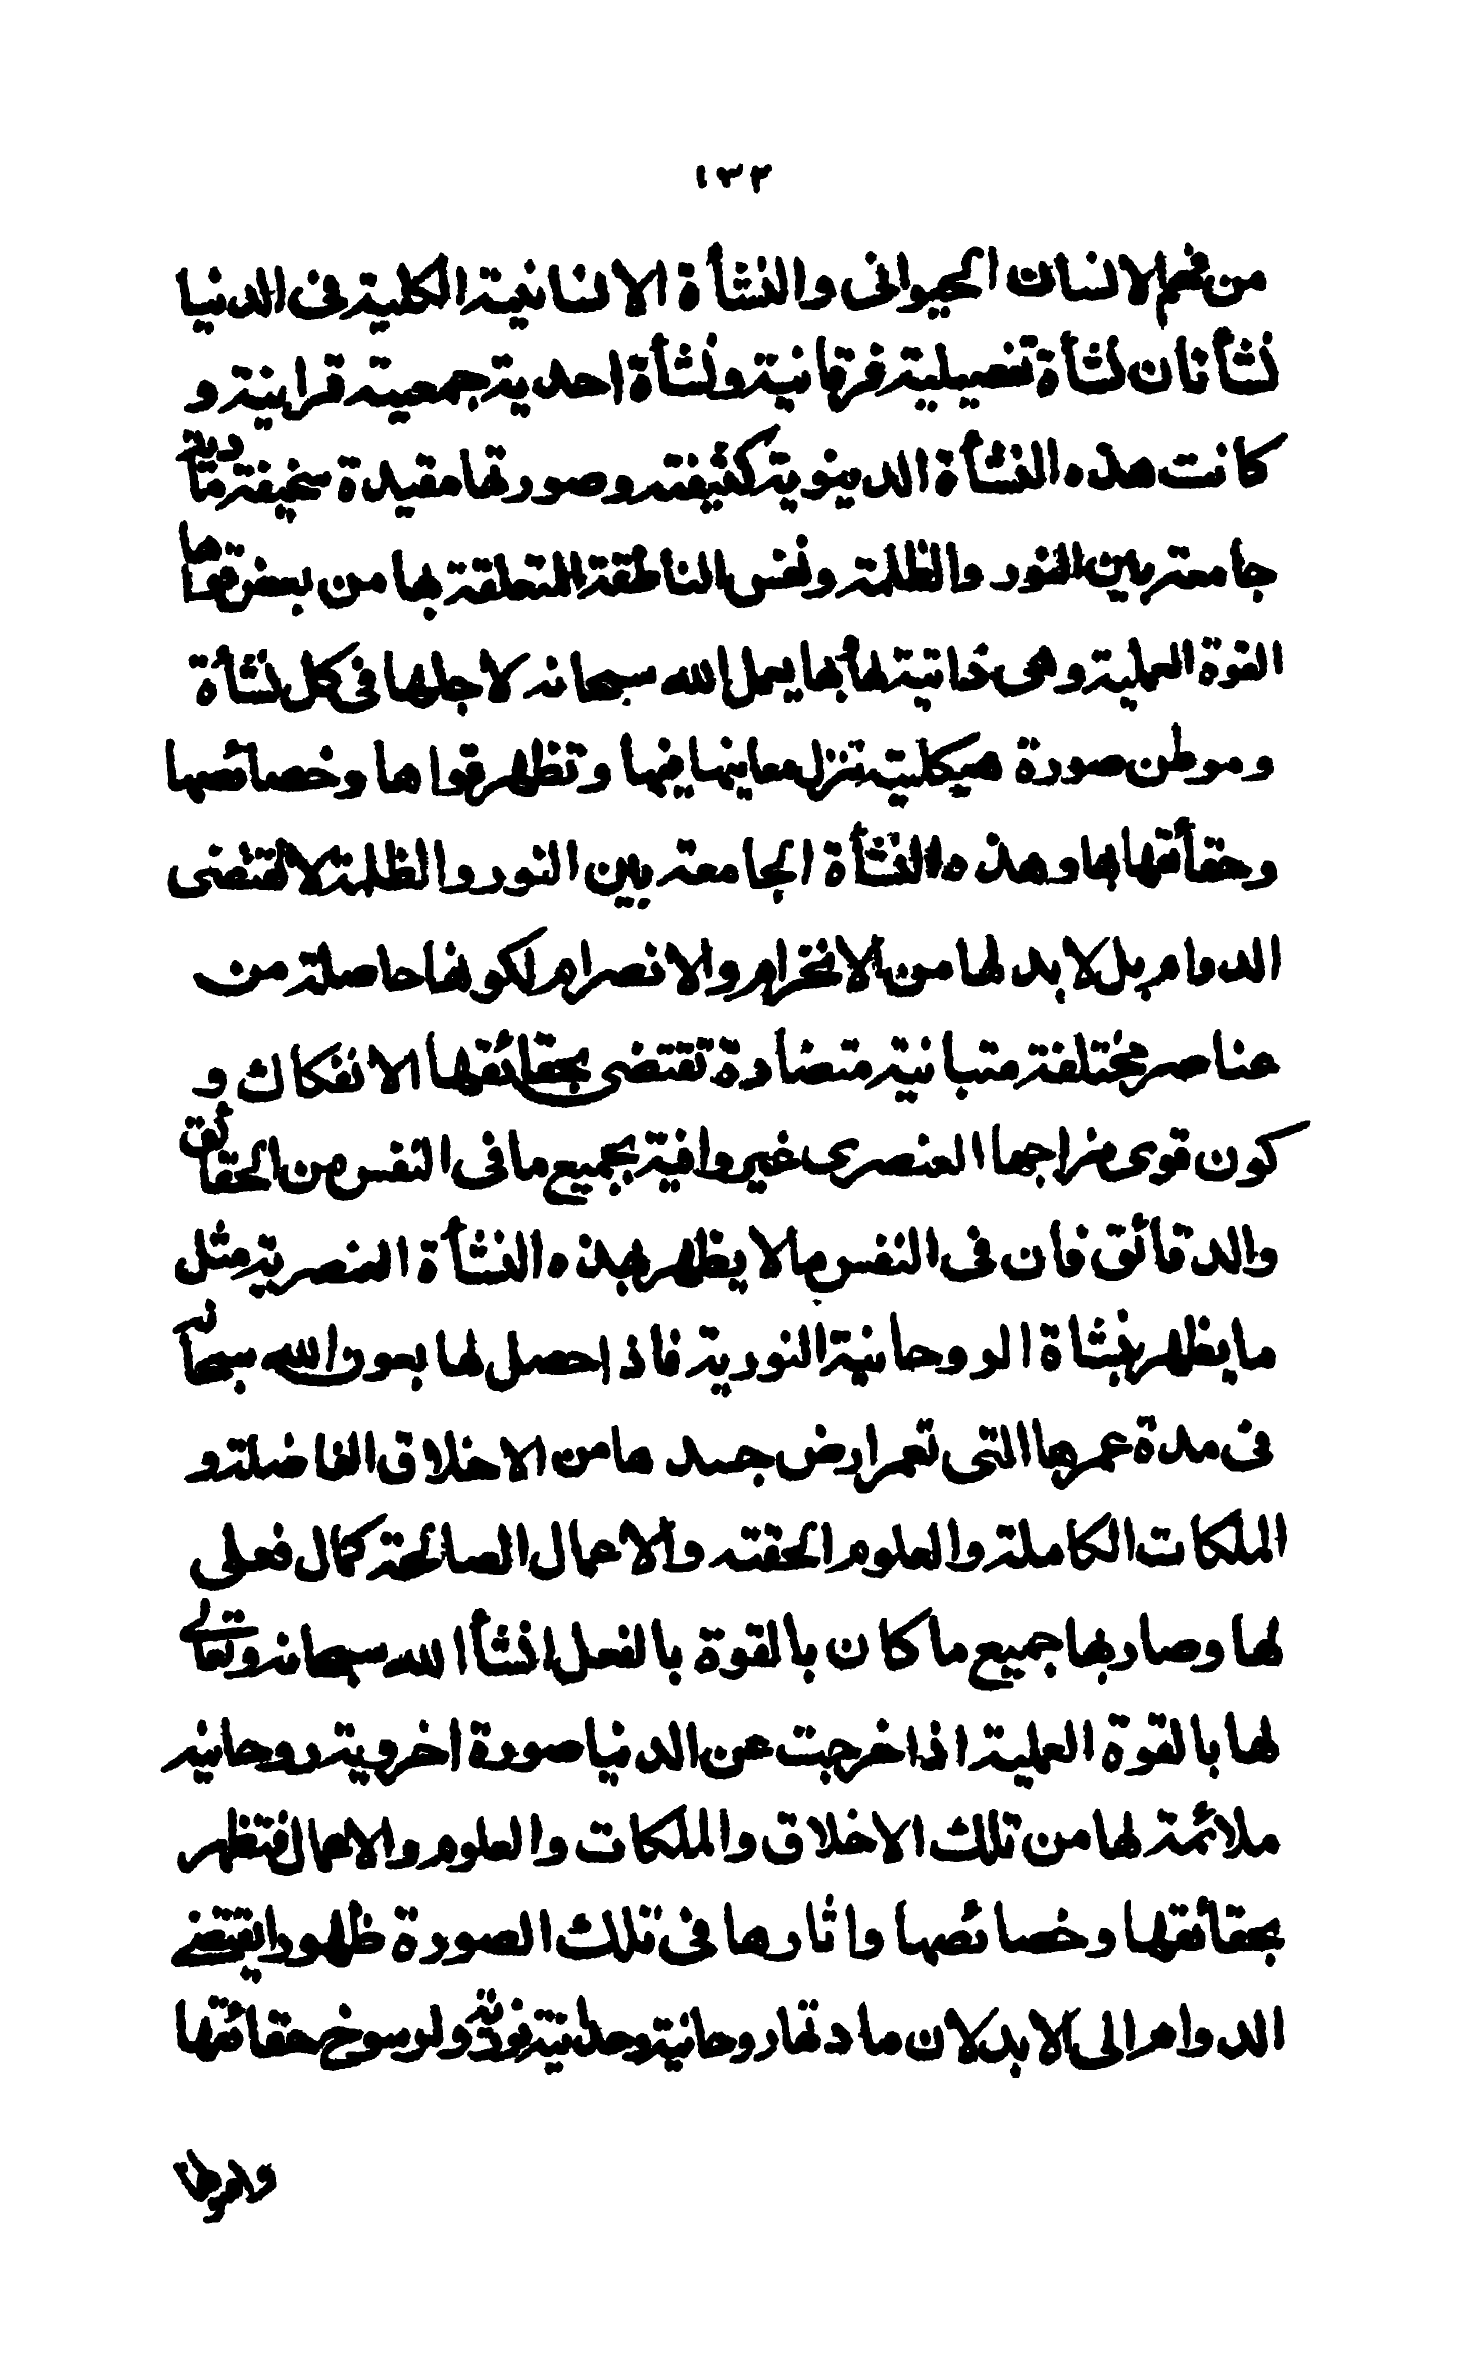 ١٣٢
من فهم الانسان الحيوانى والنشأة الانسانية الكلية فى الدنيا
نشأتان نشأة تفصيلية فرقانية ونشأة احدية جمعية قرانية و
كانت هذه النشأة الدينوية كثيفته وصورتها مقيدة سخيفة مادية
جامعة بين النور والظلمة ونفس الناطقة المتعلقة بها من بعض قواها
القوة العملية وهى ذاتية لها بها يعمل الله سبحانه لاجلها فى كل نشأة
وموطن صورة هيكلية تنزل معاينها فيها وتظهر قواها وخصائصها
وحقائقها بها وهذه النشأة الجامعة بين النور والظلمة لا تقتضى
الدوام بل لا بد لها من الانخرام والانصرام لكونها حاصلة من
عناصر مختلفة متبانية متضادة تقتضى بحقائقها الانفكاك و
كون قوى مزاجها العنصرى غير وافية بجميع ما فى النفس من الحقائق
والدقائق فان فى النفس ما لا يظهر بهذه النشأة العنصرية مثل
ما يظهر بنشاة الروحانية النورية فاذا حصل لها بعون الله سبحانه
فى مدة عمرها التى تعمر ارض جسدها من الاخلاق الفاضلة و
الملكات الكاملة والعلوم الحقته والاعمال الصالحة كمال فعلى
لها وصار بها جميع ما كان بالقوة بالفعل انشأ الله سبحانه وتعالى
لها بالقوة العملية اذا خرجت عن الدنيا صورة اخروية روحانية
ملائمة لها من تلك الاخلاق والملكات والعلوم والاعمال فتظهر
بحقائقها وخصائصها واثارها فى تلك الصورة ظهورا يقتضى
الدوام الى الابد لان مادتها روحانية وحدانية نورية ولرسوخ حقائقها